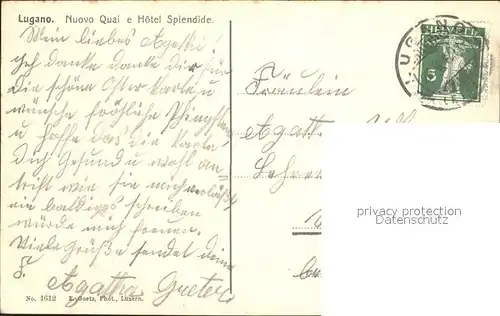 Lugano. Nuovo Quai e Hôtel Splendide.
Mein liebes Agathi!
Ich danke danke dir für
Die schöne Oster Karte u
wünsche fröhliche Pfingsten
u hoffe das die Karte
Dich Gesund u wohl an
trifft wie sie mich verläßt
ein baldiges schreiben
würde mich freuen.
Viele Grüße sendet deine
F. Agatha Greter
No. 1612 E. Goetz, Phot., Luzern.
LUGANO
HELVETIA
5
Fräulein
Agatha
Lehrerin
privacy protection
Datenschutz